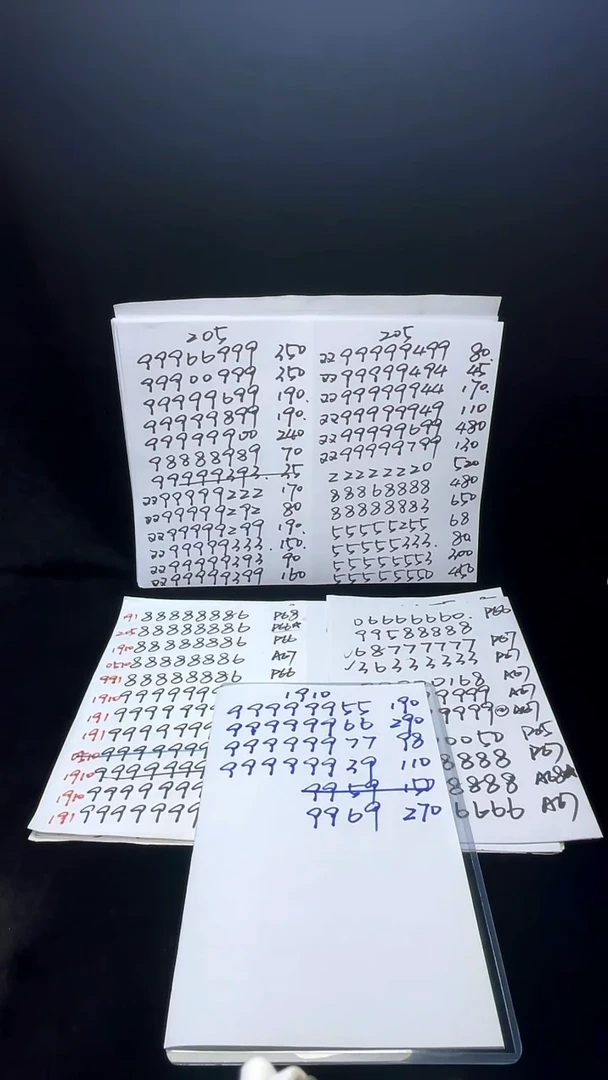 205
99966999 350
99900999 350
99999699 190.
99999899 190.
99999900 240
98888989 70
99999393 35
2299999222 170
2299999292 80
2299999299 190.
2299999333 150.
2299999393 90
2299999399 160
205
2299999499 80.
2299999494 45
2299999944 170.
2299999949 110
2299999699 480
2299999799 130
22222220 520
88868888 480
88888883 650
55555255 68
55555333 80
55555553 300
55555550 450
91 88888886 P68
205 88888886
1910 88888886 P66
0510 88888886 A67
991 88888886 P66
1910 9999999
191 9999999
191 9999999
9999999
1910 9999999
1910 9999999
191 9999999
P66
99588888
68777777 P67
13633333 P67
0168 A67
9999 A67
9999
0050 P65
8888 P67
8888
6666 A67
1910
99999955 190
99999966 290
99999977 98
99999939 110
9959 150
9969 270